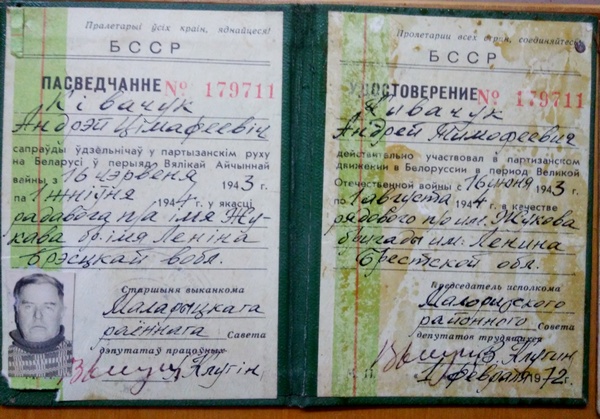 Пралетарыі ўсіх краін, яднайцеся!
БССР
ПАСВЕДЧАННЕ № 179711
Ківачук
Андрэй Цімафеевіч
сапраўды ўдзельнічаў у партызанскім руху
на Беларусі ў перыяд Вялікай Айчыннай
вайны з 16 чэрвеня 1943 г.
па 1 жніўня 1944 г. у якасці
радавога п/а імя Жу-
кава бр. імя Леніна
Брэсцкай вобл.
Старшыня выканкома
Маларыцкага
раённага Совета
дэпутатаў працоўных
Клугін
Пролетарии всех стран, соединяйтесь!
БССР
УДОСТОВЕРЕНИЕ № 179711
Кивачук
Андрей Тимофеевич
действительно участвовал в партизанском
движении в Белоруссии в период Великой
Отечественной войны с 16 июня 1943 г.
по 1 августа 1944 г. в качестве
рядового п/о им. Жукова
бригады им. Ленина
Брестской обл.
Председатель исполкома
Малоритского
районного Совета
депутатов трудящихся
Клугин
февраля 1972 г.